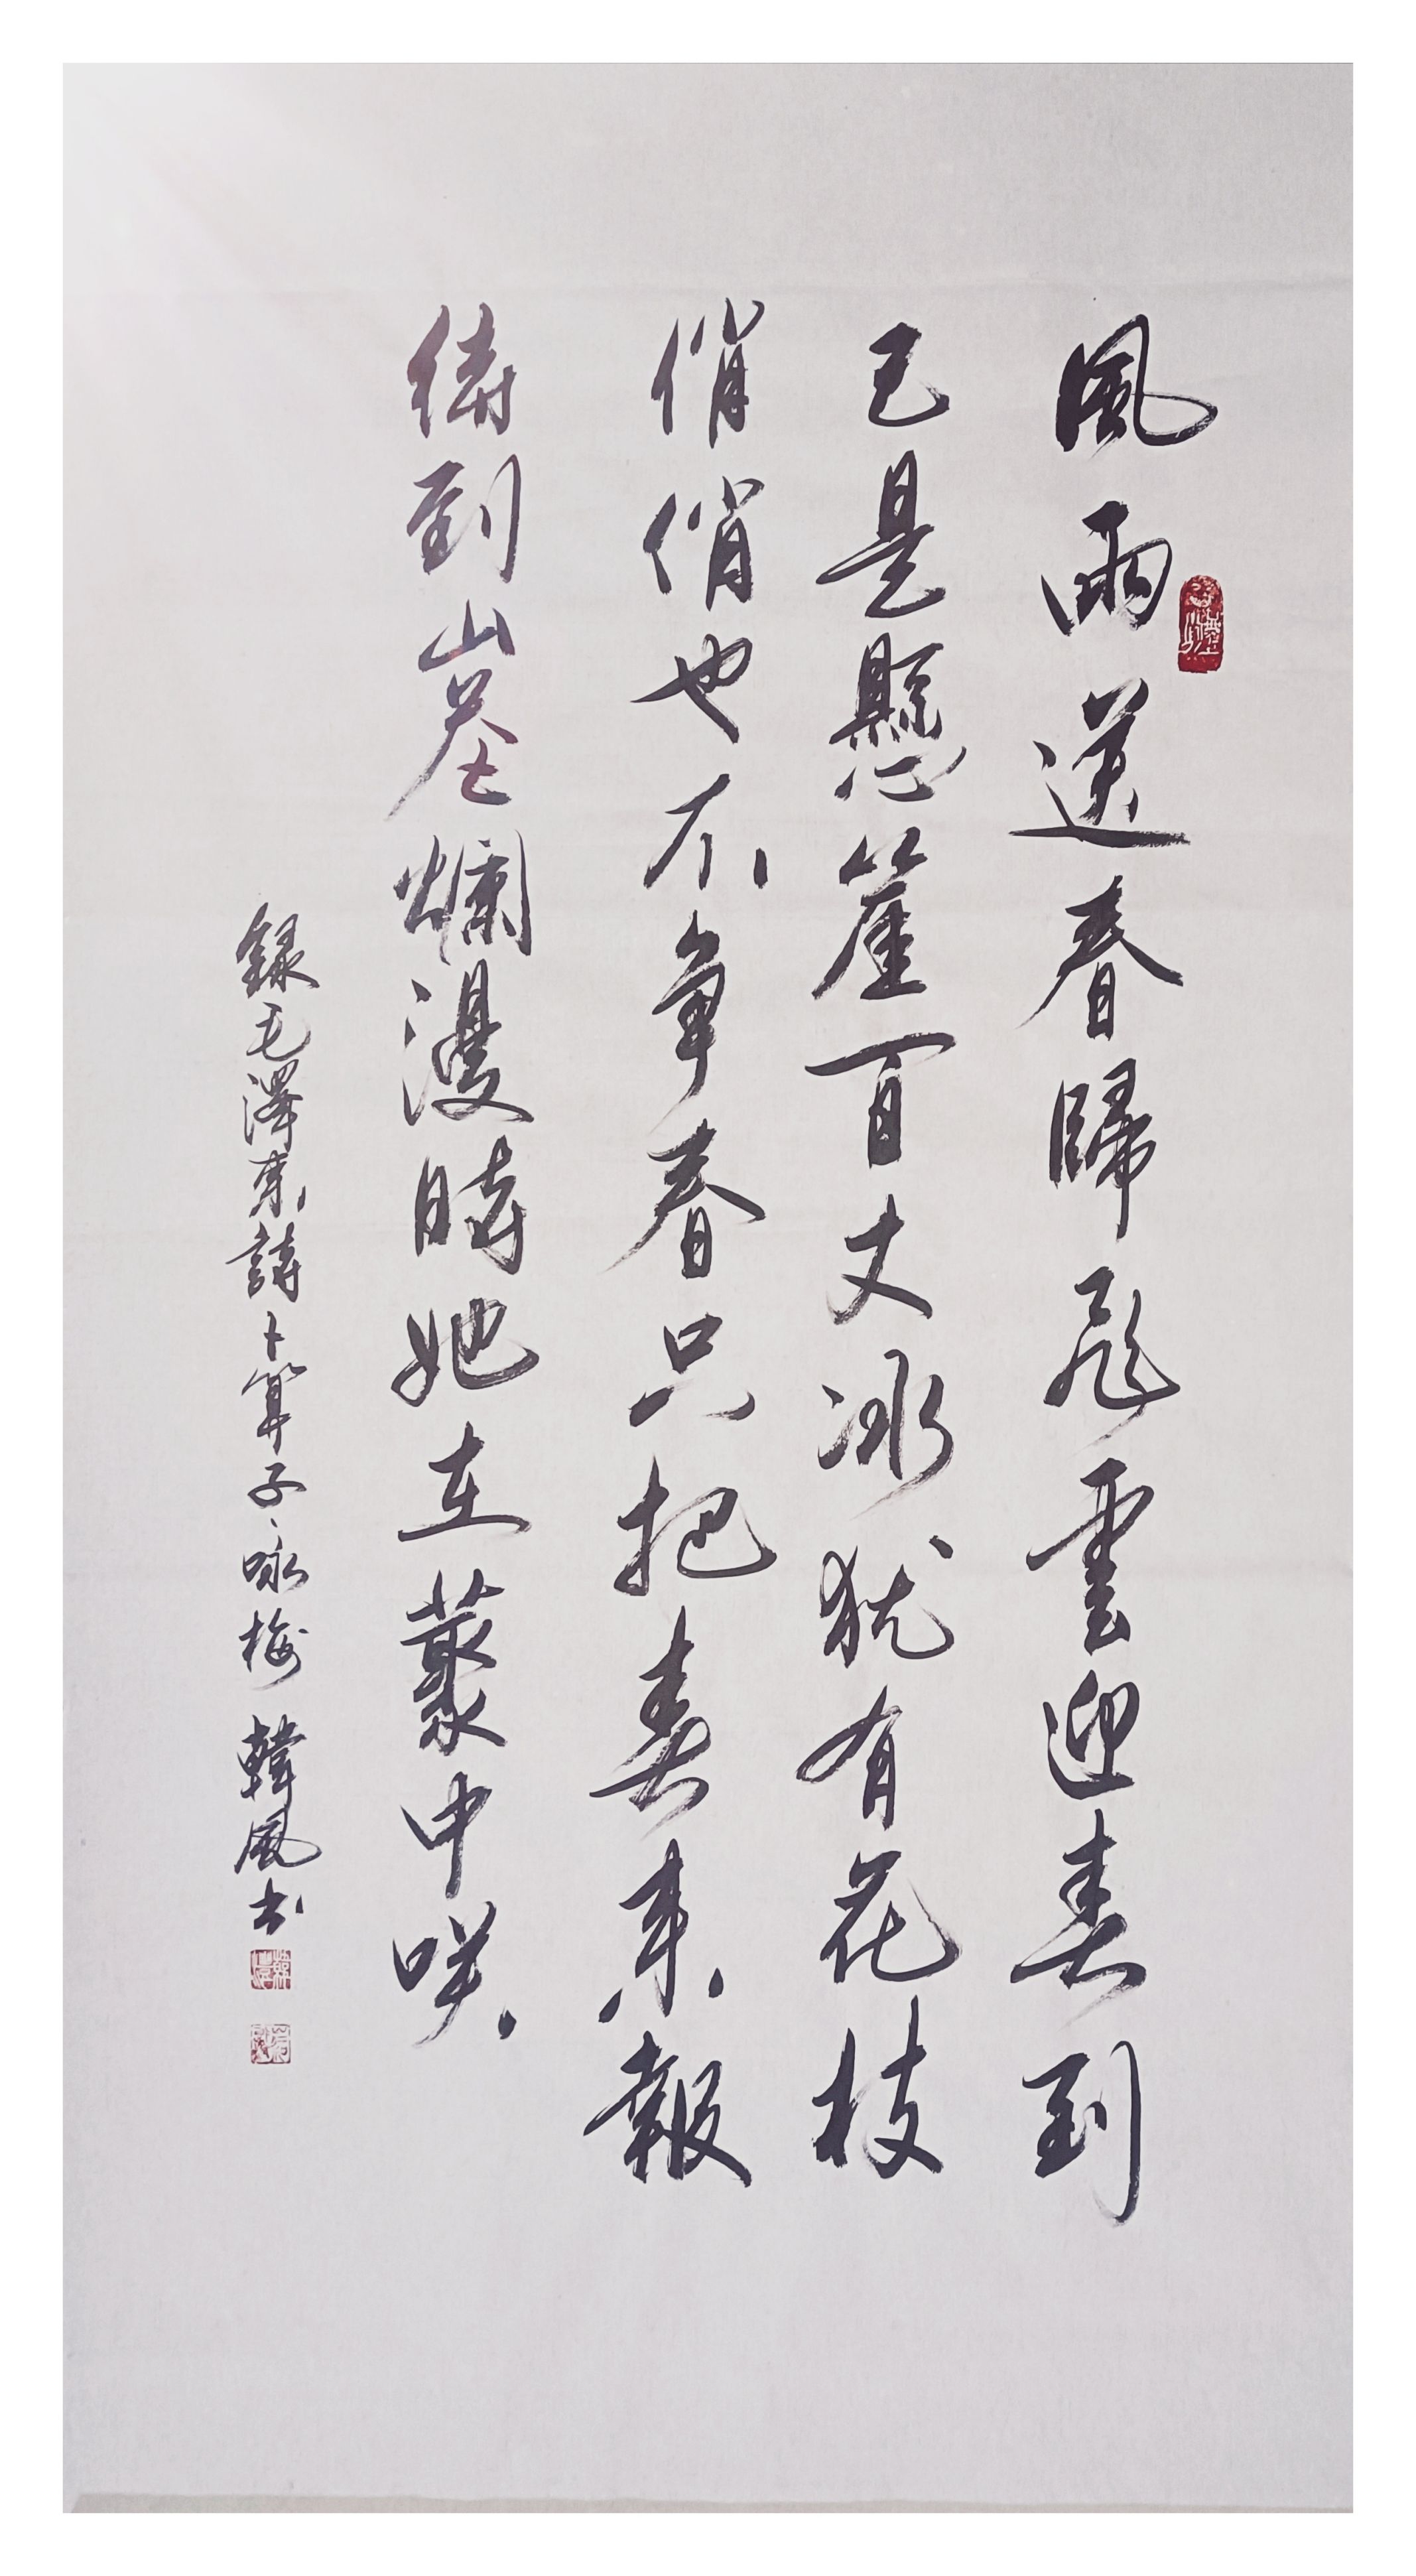 風雨送春歸飛雲迎春到
已是懸崖百丈冰犹有花枝
俏俏也不争春只把春来報
待到山花爛漫時她在藂中咲
録毛澤東詩卜算子咏梅 韓風书